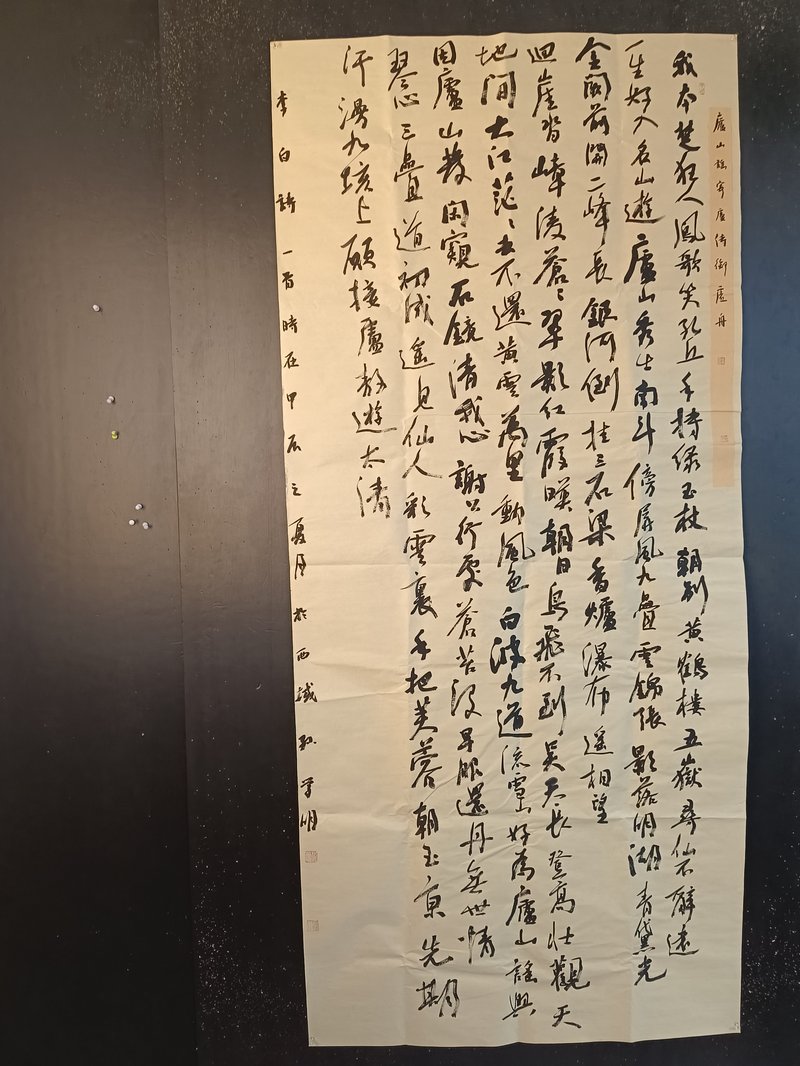 廬山謠寄盧侍御虛舟
我本楚狂人鳳歌笑孔丘手持綠玉杖朝別黃鶴樓五嶽尋仙不辭遠
一生好入名山遊廬山秀出南斗傍屏風九疊雲錦張影落明湖青黛光
金闕前開二峰長銀河倒挂三石梁香爐瀑布遙相望
迴崖沓嶂淩蒼〻翠影紅霞映朝日鳥飛不到吳天長登高壯觀天
地間大江茫〻去不還黃雲萬里動風色白波九道流雪山好為廬山謠興
因廬山發閑窺石鏡清我心謝公行處蒼苔沒早服還丹無世情
琴心三疊道初成遙見仙人彩雲裏手把芙蓉朝玉京先期
汗漫九垓上願接盧敖遊太清
李白詩一首時在甲辰之夏月於西